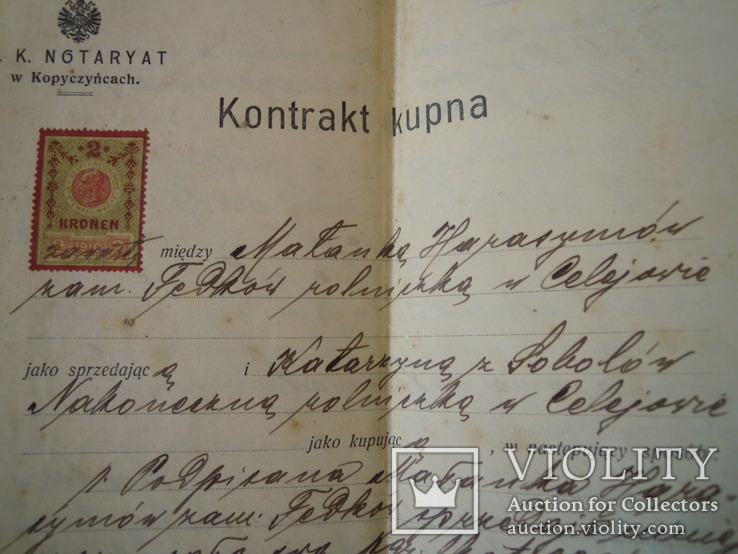 . K. NOTARYAT
w Kopyczyńcach.
Kontrakt kupna
2
KRONEN
zawarty między Małanką Harasymów
zam. Fedków rolniczką w Celejowie
jako sprzedając ą i Katarzyną z Sobolów
Nakoneczną rolniczką w Celejowie
jako kupując ą , w następujący sposób:
1. Podpisana Małanka Hara-
symów zam. Fedków
VIOLITY
Auction for Collectors
auction.violity.com